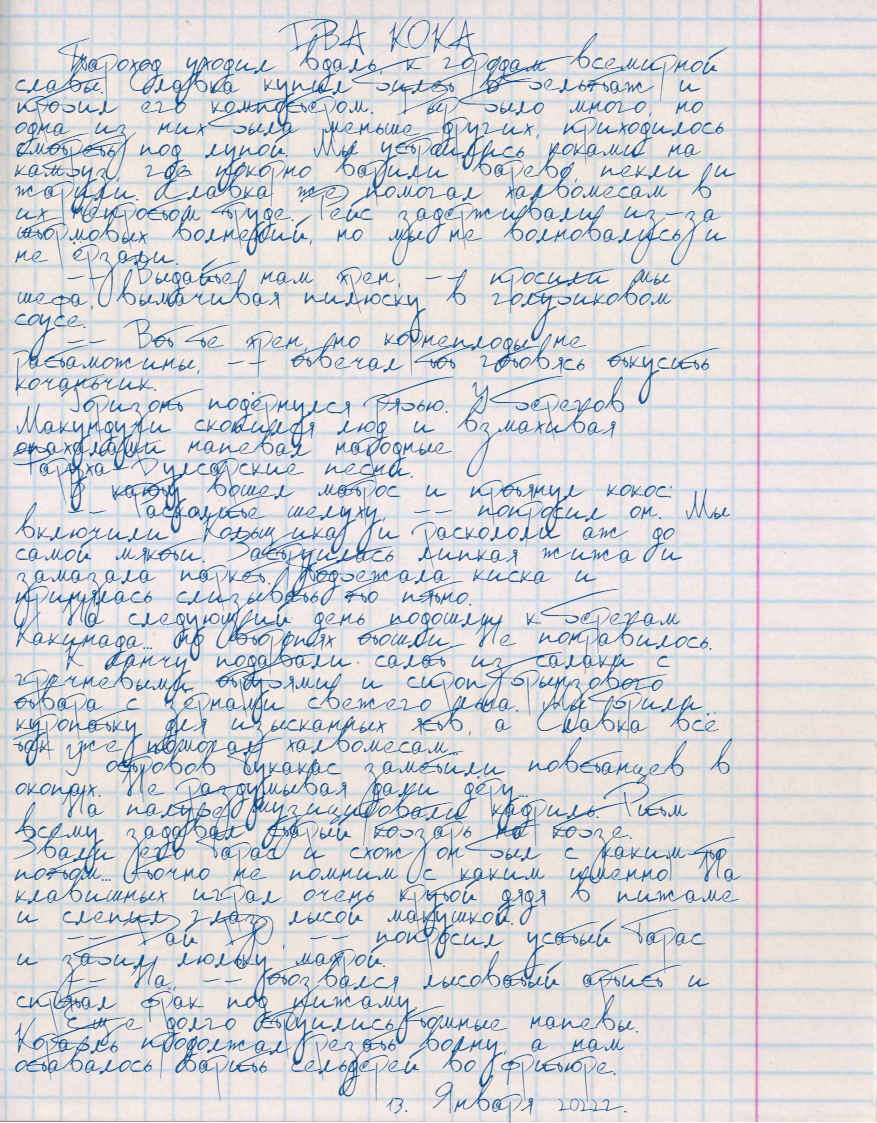 ДВА КОКА
Пароход уходил вдаль, к городам всемирной
славы. Славка купил билет в бельэтаж и
пробил его компостером. Дыр было много, но
одна из них была меньше других, приходилось
смотреть под лупой. Мы устроились коками на
камбуз, где покорно варили варево, пекли и
жарили. Славка же помогал халвомесам в
их непростом труде. Рейс задерживали из-за
штормовых волнений, но мы не волновались и
не ёрзали.
-- Выдайте нам хрен, -- просили мы
шефа, вымачивая пилюску в голубиковом
соусе.
-- Вот те хрен, но корнеплоды не
растаможины, -- отвечал тот готовясь откусить
кочанчик.
Горизонт подёрнулся рябью. У берегов
Макундучи скопился люд и взмахивая
опахалами напевал народные
Гаруха-Дулсарские песни.
В каюту вошел матрос и протянул кокос:
-- Расколите шелуху, -- попросил он. Мы
включили Колыш ика и раскололи аж до
самой мякоти. Заструилась липкая жижа и
замазала паркет. Подбежала киска и
принялась слизывать то пятно.
На следующий день подошли к берегам
Какинада... но второпях отошли. Не понравилось.
К ланчу подавали салат из салаки с
гречневыми отрубями и сироп брынзового
отвара с зёрнами свежего льна. Мы брили
куропатку для изысканных яств, а Славка всё
так уже помогал халвомесам...
У островов Букакас заметили повстанцев в
окопах. Не раздумывая дали дёру...
На палубе музицировали кадриль. Ритм
всему задавал старый кобзарь на кобзе.
Звали его Тарас и схож он был с каким-то
потом... точно не помним с каким именно. На
клавишных играл очень крутой дядя в пижаме
и слепил глаз лысой макушкой.
-- Дай До, -- попросил усатый Тарас
и забил люльку махрой.
-- На, -- отозвался лысоватый артист и
спрятал фрак под пижаму.
Еще долго струились томные напевы.
Корабль продолжал резать волну, а нам
оставалось варить сельдерей во фритюре.
13. Января 20222.